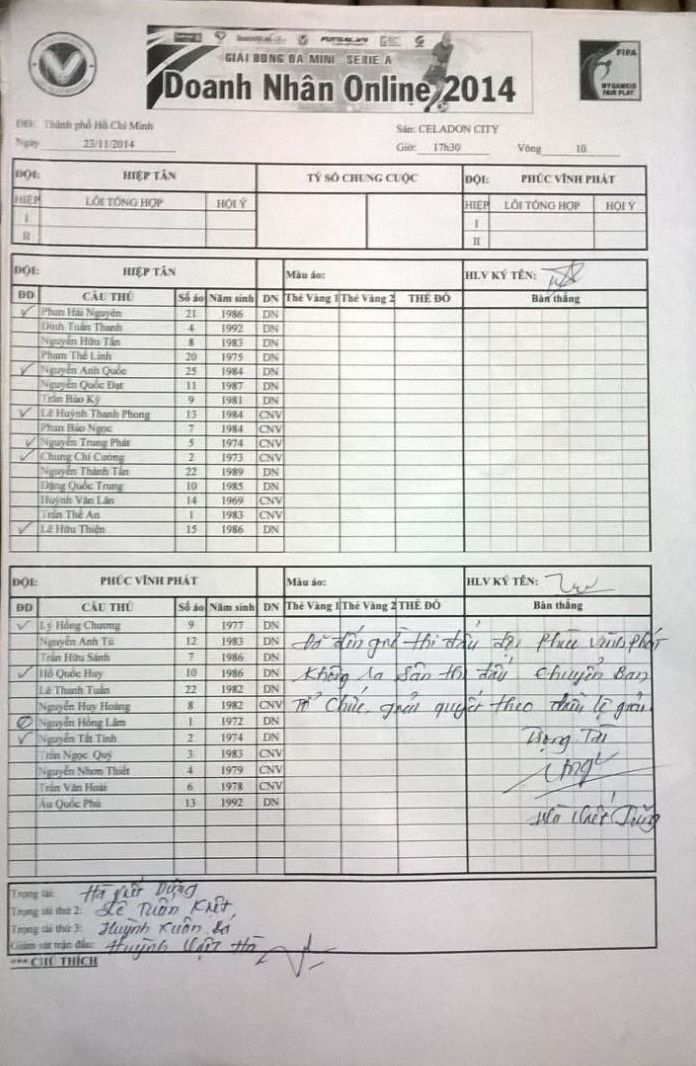 FUTSAL.VN
GIẢI BÓNG ĐÁ MINI - SERIE A
Doanh Nhân Online 2014
FIFA
MY GAME IS
FAIR PLAY
ĐĐ: Thành phố Hồ Chí Minh
Sân: CELADON CITY
Ngày 23/11/2014
Giờ: 17h30 Vòng 10
ĐỘI: HIỆP TÂN TỶ SỐ CHUNG CUỘC ĐỘI: PHÚC VĨNH PHÁT
HIỆP LỖI TỔNG HỢP HỘI Ý HIỆP LỖI TỔNG HỢP HỘI Ý
I I
II II
ĐỘI: HIỆP TÂN Màu áo: HLV KÝ TÊN:
ĐD CẦU THỦ Số áo Năm sinh DN Thẻ Vàng 1 Thẻ Vàng 2 THẺ ĐỎ Bàn thắng
✓ Phan Hải Nguyên 21 1986 DN
Đinh Tuấn Thanh 4 1992 DN
Nguyễn Hữu Tấn 8 1983 DN
Phạm Thế Linh 20 1975 DN
✓ Nguyễn Anh Quốc 25 1984 DN
Nguyễn Quốc Đạt 11 1987 DN
Trần Bảo Kỳ 9 1981 DN
✓ Lê Huỳnh Thanh Phong 13 1984 CNV
Phan Bảo Ngọc 7 1984 CNV
✓ Nguyễn Trung Phát 5 1974 CNV
✓ Chung Chí Cường 2 1973 CNV
Nguyễn Thành Tấn 22 1989 DN
Đặng Quốc Trung 10 1985 DN
Huỳnh Văn Lân 14 1969 CNV
Trần Thế An 1 1983 CNV
✓ Lê Hữu Thiện 15 1986 DN
ĐỘI: PHÚC VĨNH PHÁT Màu áo: HLV KÝ TÊN:
ĐD CẦU THỦ Số áo Năm sinh DN Thẻ Vàng 1 Thẻ Vàng 2 THẺ ĐỎ Bàn thắng
✓ Lý Hồng Chương 9 1977 DN
Nguyễn Anh Tú 12 1983 DN
Trần Hữu Sánh 7 1986 DN
✓ Hồ Quốc Huy 10 1986 DN
Lê Thanh Tuấn 22 1982 DN
Nguyễn Huy Hoàng 8 1982 CNV
Nguyễn Hồng Lâm 1 1972 DN
✓ Nguyễn Tất Tính 2 1974 DN
Trần Ngọc Quý 3 1983 CNV
Nguyễn Nhơn Thiết 4 1979 CNV
Trần Văn Hoài 6 1978 CNV
Âu Quốc Phú 13 1992 DN
Đã đến giờ thi đấu đội Phúc Vĩnh Phát
Không ra sân thi đấu chuyển Ban
Tổ Chức, giải quyết theo điều lệ giải
Trọng Tài
Hà Viết Dũng
Trọng tài: Hà Viết Dũng
Trọng tài thứ 2: Lê Tuấn Kiệt
Trọng tài thứ 3: Huỳnh Xuân Bá
Giám sát trận đấu: Huỳnh Việt Hà
*** CHÚ THÍCH